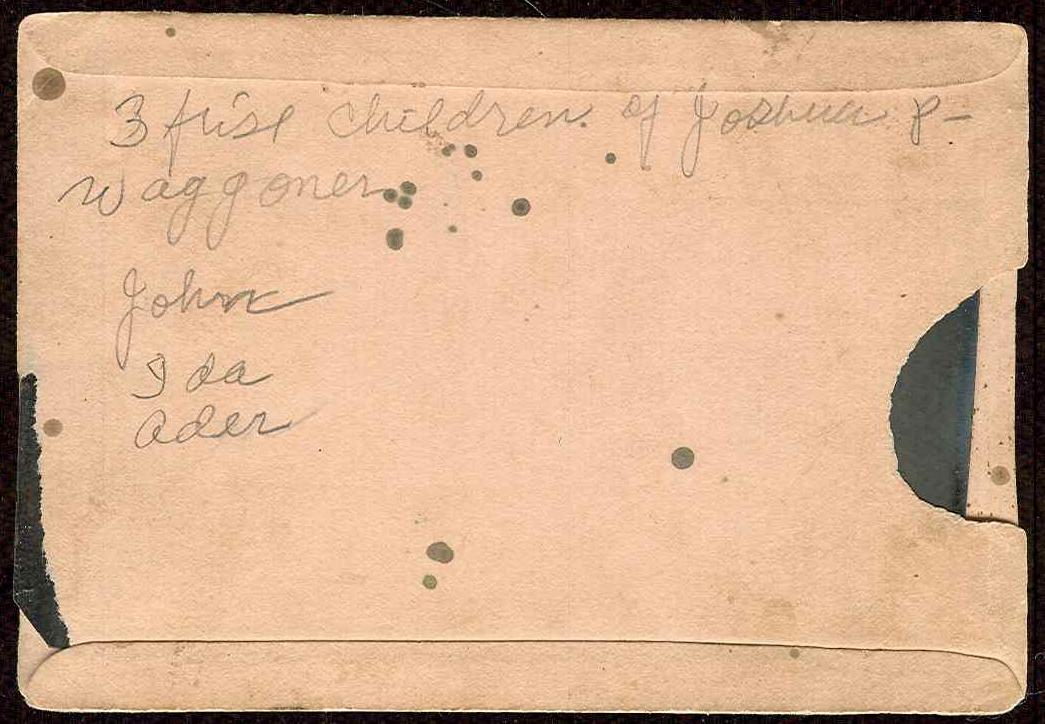 3 first children. of Joshua P-
Waggoner
John
Ida
Ader